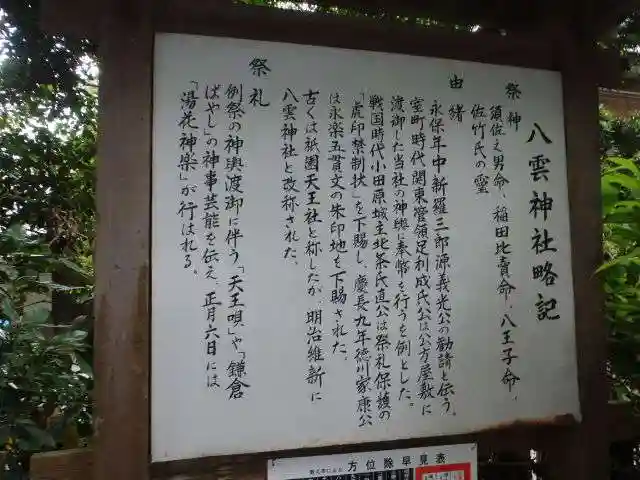 八雲神社略記
祭神
須佐之男命、稲田比賣命、八王子命、
佐竹氏の霊
由緒
永保年中新羅三郎源義光公の勧請と伝う。
室町時代関東管領足利成氏公は公方屋敷に
渡御した当社の神輿に奉幣を行うを例とした。
戦国時代小田原城主北条氏直公は祭礼保護の
「虎印禁制状」を下賜し、慶長九年徳川家康公
は永楽五貫文の朱印地を下賜された。
古くは祇園天王社と称したが、明治維新に
八雲神社と改称された。
祭礼
例祭の神輿渡御に伴う「天王唄」や「鎌倉
ばやし」の神事芸能を伝え、正月六日には
「湯花神楽」が行はれる。
方位除早見表